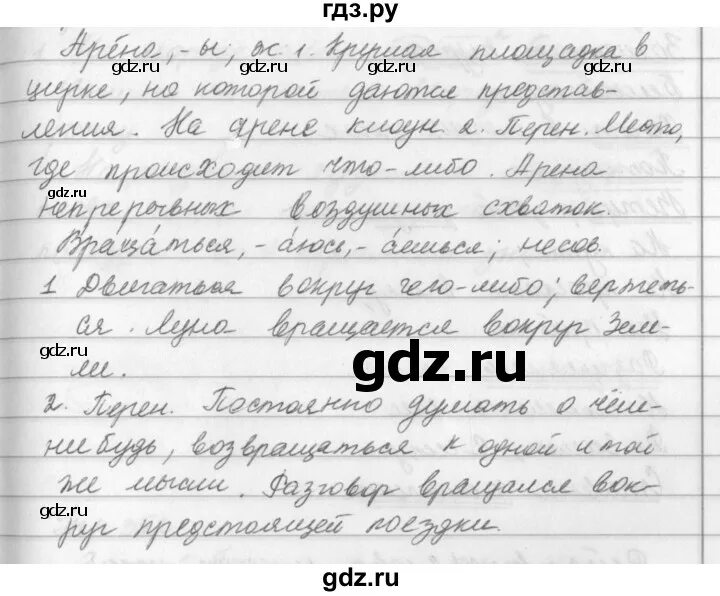 гдз.ру
Аре́на, -ы, ж. 1. Круглая площадка в
цирке, на которой даются представ-
ления. На арене клоун. 2. Перен. Место,
где происходит что-либо. Арена
непрерывных воздушных схваток.
Враща́ться, -а́юсь, -а́ешься; несов.
1 Двигаться вокруг чего-либо; вертеть-
ся. Луна вращается вокруг Зем-
ли.
2. Перен. Постоянно думать о чём-
нибудь, возвращаться к одной и той
же мысли. Разговор вращался вок-
руг предстоящей поездки.
gdz.ru
gdz.ru
gdz.ru
gdz.ru
gdz.ru
gdz.ru
gdz.ru
gdz.ru
gdz.ru
gdz.ru
gdz.ru
gdz.ru
gdz.ru
gdz.ru